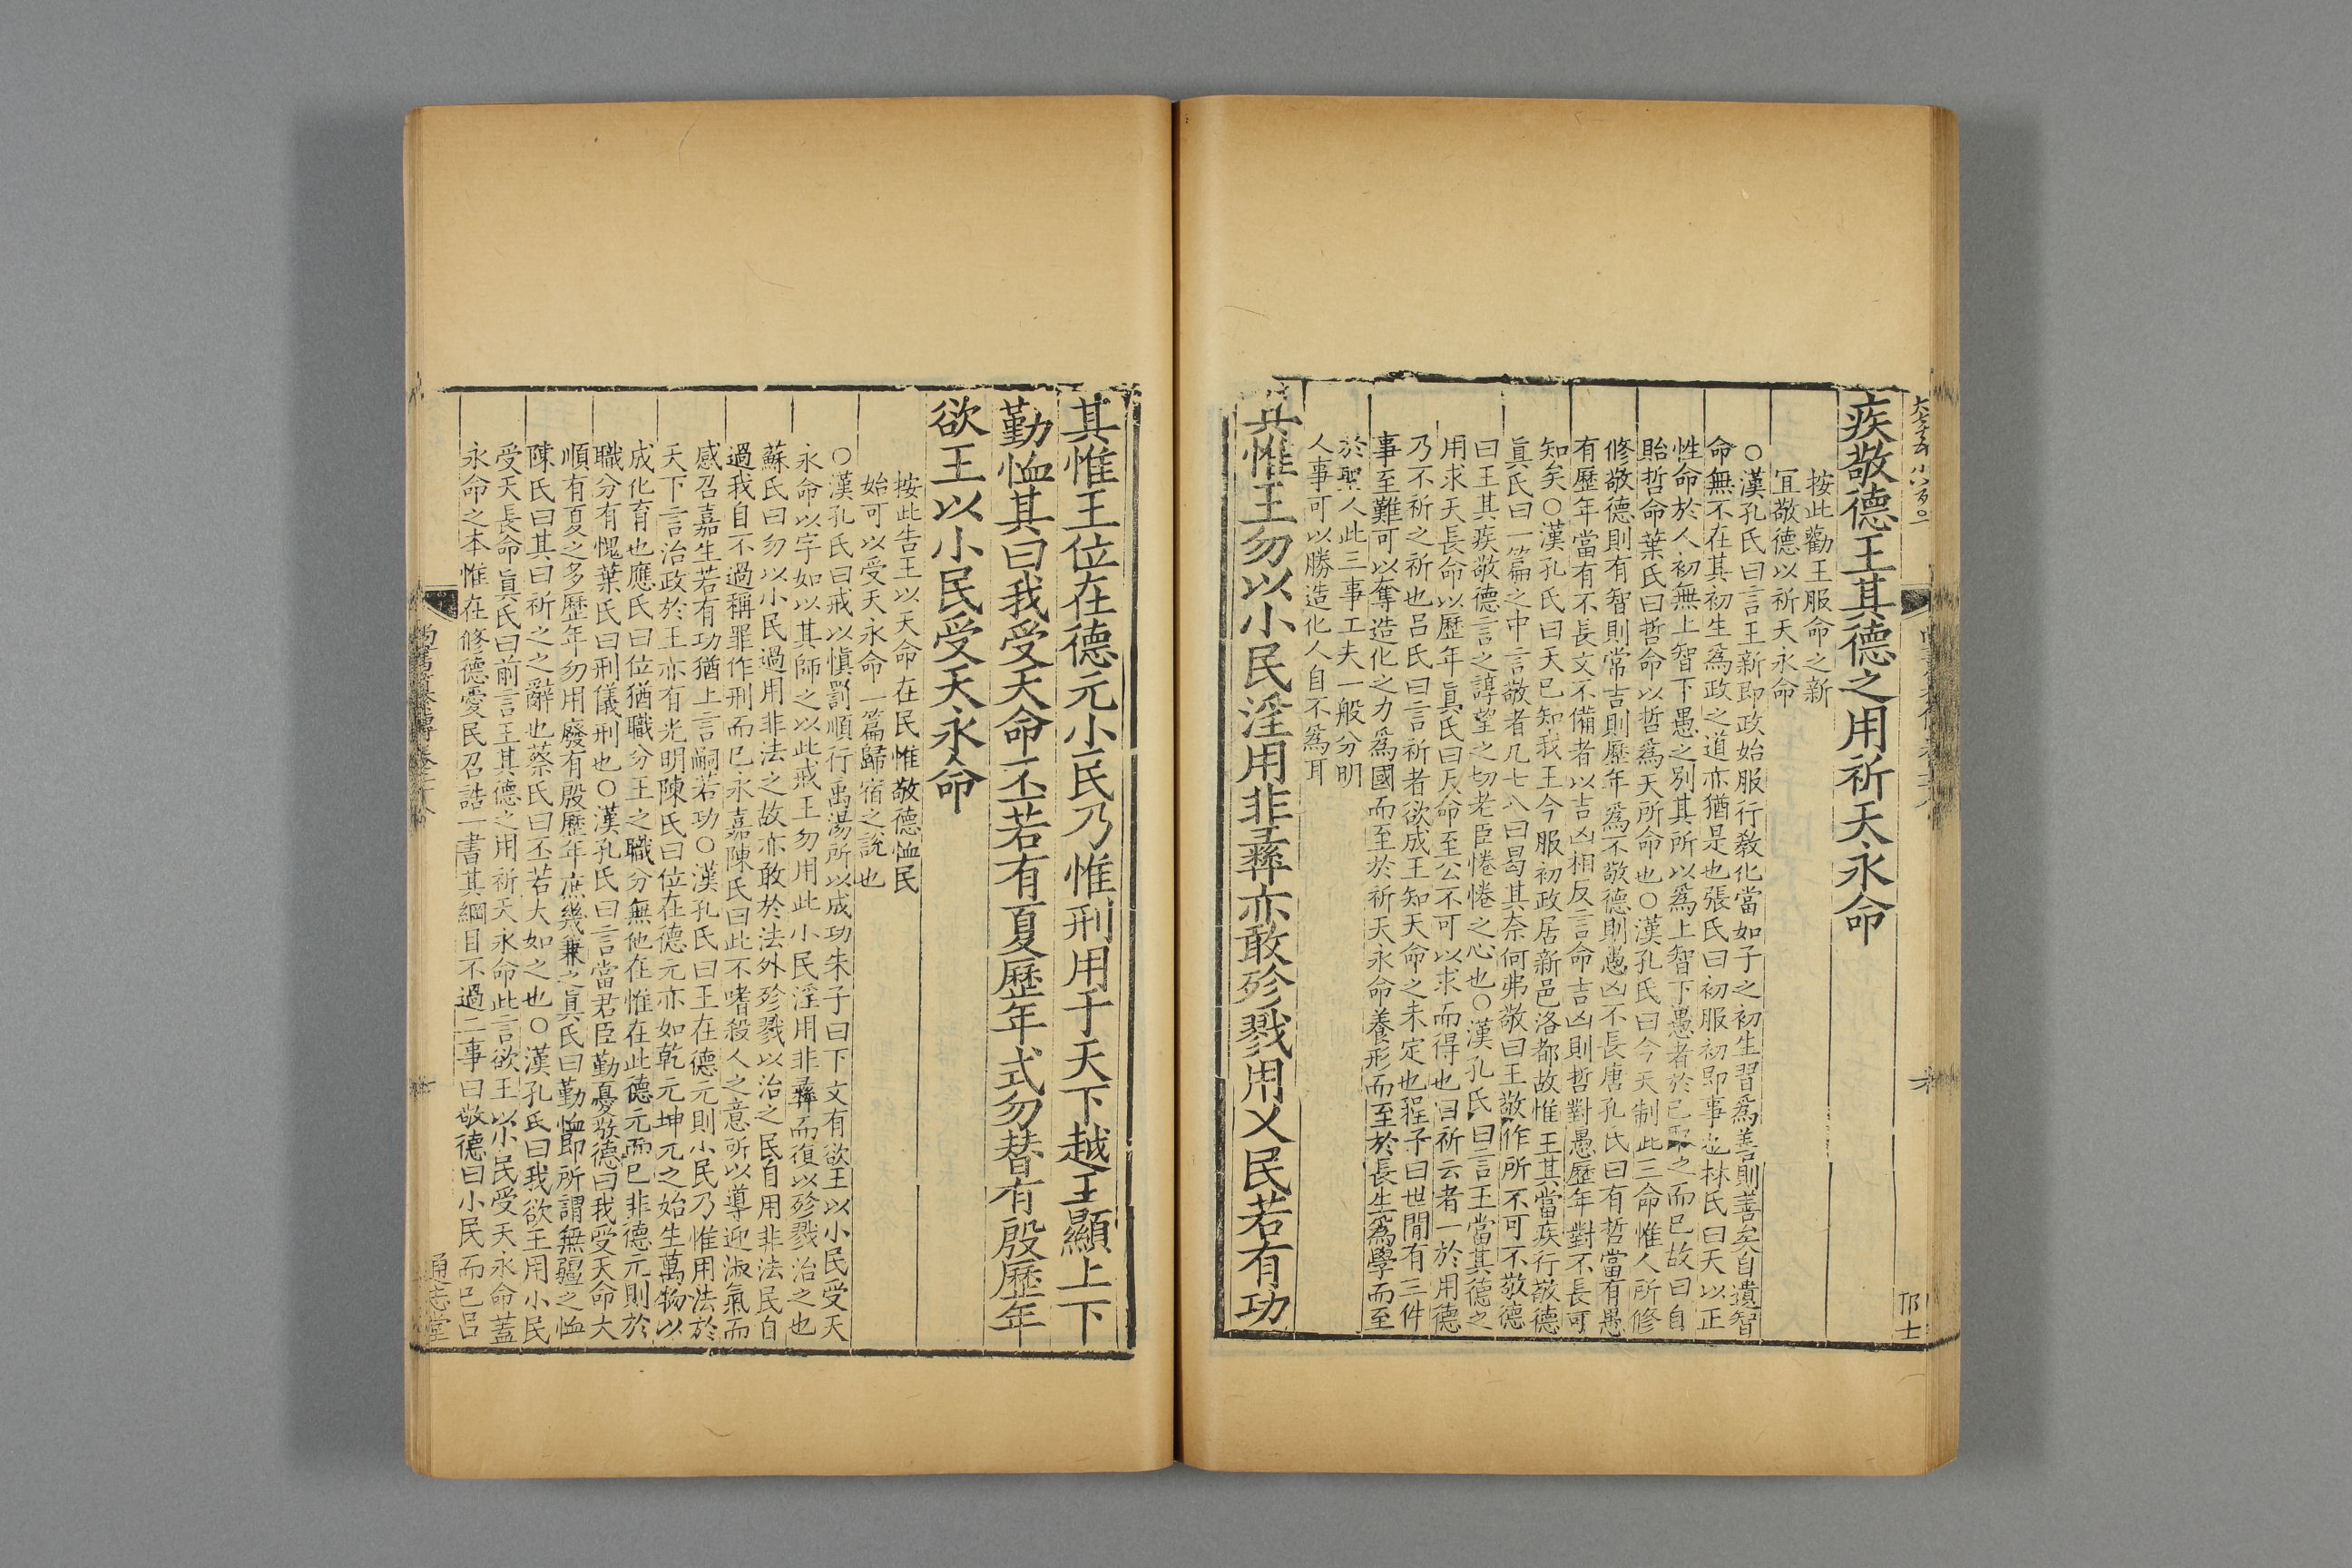 疾敬德王其德之用祈天永命
按此勸王服命之新
宜敬德以祈天永命
○漢孔氏曰言王新即政始服行敎化當如子之初生習爲善則善矣自遺智
命無不在其初生爲政之道亦猶是也張氏曰初服初即事也林氏曰天以正
性命於人初無上智下愚之別其所以爲上智下愚者於己取之而已故曰自
貽哲命葉氏曰哲命以哲爲天所命也○漢孔氏曰今天制此三命惟人所修
修敬德則有智則常吉則歷年爲不敬德則愚凶不長唐孔氏曰有哲當有愚
有歷年當有不長文不備者以吉凶相反言命吉凶則哲對愚歷年對不長可
知矣○漢孔氏曰天已知我王今服初政居新邑洛都故惟王其當疾行敬德
眞氏曰一篇之中言敬者凡七八曰曷其奈何弗敬曰王敬作所不可不敬德
曰王其疾敬德言之諄望之切老臣惓惓之心也○漢孔氏曰言王當其德之
用求天長命以歷年眞氏曰天命至公不可以求而得也曰祈云者一於用德
乃不祈之祈也呂氏曰言祈者欲成王知天命之未定也程子曰世間有三件
事至難可以奪造化之力爲國而至於祈天永命養形而至於長生爲學而至
於聖人此三事工夫一般分明
人事可以勝造化人自不爲耳
其惟王勿以小民淫用非彝亦敢殄戮用乂民若有功
邝士
其惟王位在德元小民乃惟刑用于天下越王顯上下
勤恤其曰我受天命丕若有夏歷年式勿替有殷歷年
欲王以小民受天永命
按此告王以天命在民惟敬德恤民
始可以受天永命一篇歸宿之說也
○漢孔氏曰戒以愼罰順行禹湯所以成功朱子曰下文有欲王以小民受天
永命以字如以其師之以此戒王勿用此小民淫用非彝而復以殄戮治之也
蘇氏曰勿以小民過用非法之故亦敢於法外殄戮以治之民自用非法民自
過我自不過稱罪作刑而已永嘉陳氏曰此不嗜殺人之意所以導迎淑氣而
感召嘉生若有功猶上言嗣若功○漢孔氏曰王在德元則小民乃惟用法於
天下言治政於王亦有光明陳氏曰位在德元亦如乾元坤元之始生萬物以
成化育也應氏曰位猶職分王之職分無他在惟在此德元而已非德元則於
職分有愧葉氏曰刑儀刑也○漢孔氏曰言當君臣勤憂敬德曰我受天命大
順有夏之多歷年勿用廢有殷歷年庶幾兼之眞氏曰勤恤即所謂無疆之恤
陳氏曰其曰祈之之辭也蔡氏曰丕若大如之也○漢孔氏曰我欲王用小民
受天長命眞氏曰前言王其德之用祈天永命此言欲王以小民受天永命蓋
永命之本惟在修德愛民召誥一書其綱目不過二事曰敬德曰小民而已呂
通志堂